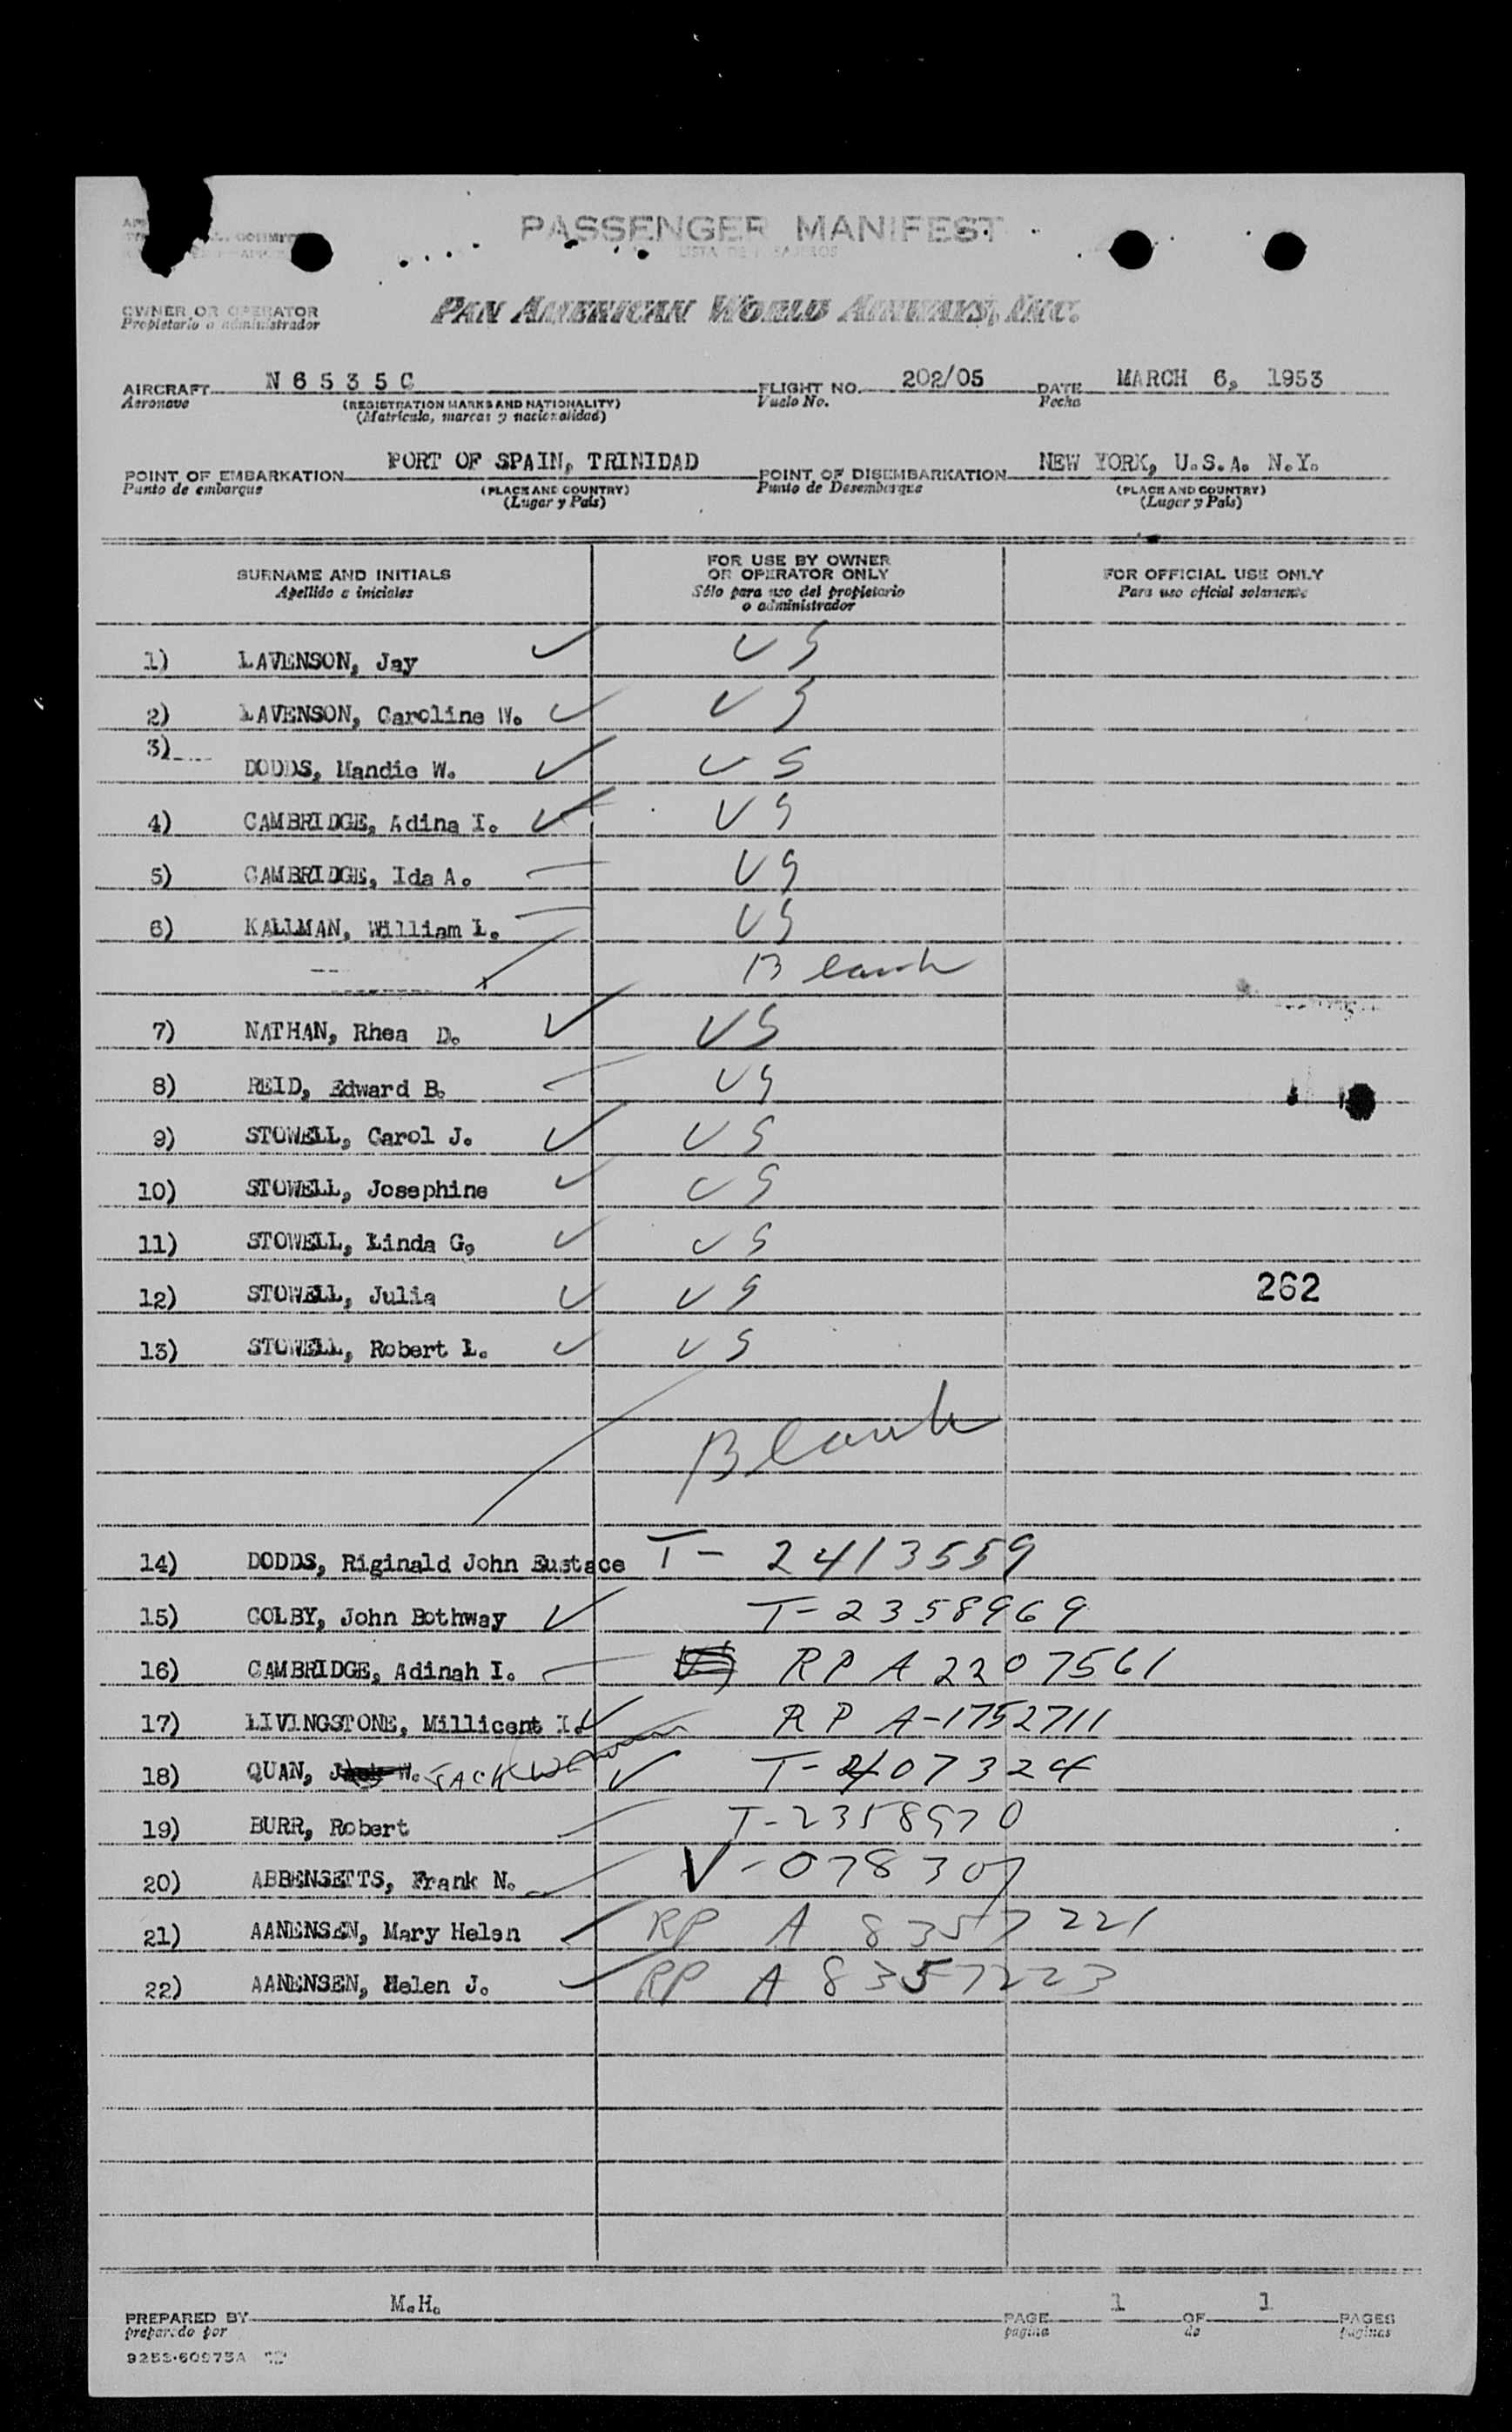 PASSENGER MANIFEST
OWNER OR OPERATOR
Propietario o administrador
PAN AMERICAN WORLD AIRWAYS, INC.
AIRCRAFT N 6 5 3 5 C FLIGHT NO. 202/05 DATE MARCH 6, 1953
Aeronave (REGISTRATION MARKS AND NATIONALITY) Vuelo No. Fecha
(Matrícula, marcas y nacionalidad)
POINT OF EMBARKATION PORT OF SPAIN, TRINIDAD POINT OF DISEMBARKATION NEW YORK, U.S.A. N.Y.
Punto de embarque (PLACE AND COUNTRY) Punto de Desembarque (PLACE AND COUNTRY)
(Lugar y País) (Lugar y País)
SURNAME AND INITIALS
Apellido e iniciales
FOR USE BY OWNER
OR OPERATOR ONLY
Sólo para uso del propietario
o administrador
FOR OFFICIAL USE ONLY
Para uso oficial solamente
1) LAVENSON, Jay US
2) LAVENSON, Caroline W. US
3) DODDS, Mandie W. US
4) CAMBRIDGE, Adina I. US
5) CAMBRIDGE, Ida A. US
6) KALLMAN, William L. US
Blank
7) NATHAN, Rhea D. US
8) REID, Edward B. US
9) STOWELL, Carol J. US
10) STOWELL, Josephine US
11) STOWELL, Linda G, US
12) STOWELL, Julia US 262
13) STOWELL, Robert L. US
Blank
14) DODDS, Riginald John Eustace T- 2413559
15) COLBY, John Bothway T-2358969
16) CAMBRIDGE, Adinah I. RP A 2207561
17) LIVINGSTONE, Millicent I. RP A-1752711
18) QUAN, JACK T-2407324
19) BURR, Robert T-2358970
20) ABBENSETTS, Frank N. V-078307
21) AANENSEN, Mary Helen RP A 8357221
22) AANENSEN, Helen J. RP A 8357223
PREPARED BY M.H. PAGE 1 OF 1 PAGES
preparado por página de páginas
9253-60975A